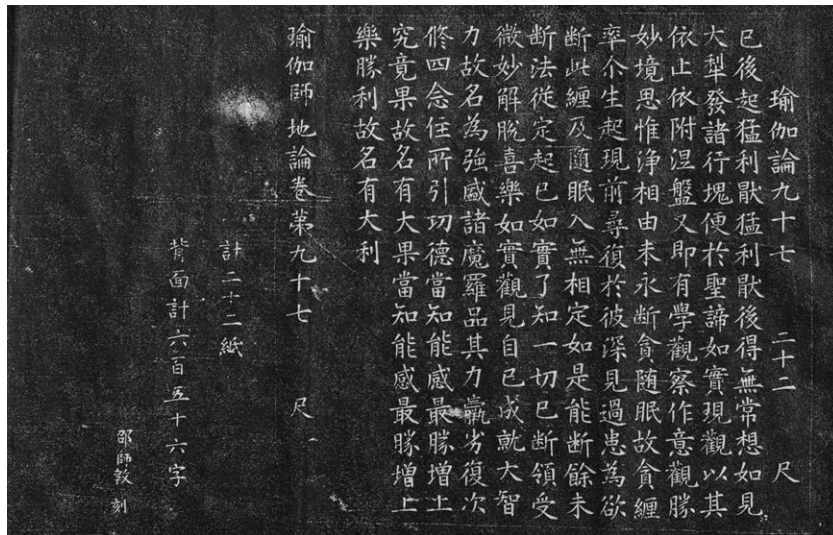 瑜伽論九十七 二十二 尺
已後起猛利猒猛利猒後得無常想如見
大犁發諸行塊便於聖諦如實現觀以其
依止依附涅盤又即有學觀察作意觀勝
妙境思惟淨相由未永断貪随眠故貪纏
率尒生起現前尋復於彼深見過患為欲
断此纏及隨眠入無相定如是能断餘未
断法從定起已如實了知一切已断領受
微妙解脫喜樂如實觀見自已成就大智
力故名為強盛諸魔羅品其力羸劣復次
修四念住所引功德當知能感最勝增上
究竟果故名有大果當知能感最勝增上
樂勝利故名有大利
瑜伽師地論卷第九十七 尺
計二十二紙
背面計六百五十六字
邵師敦 刻